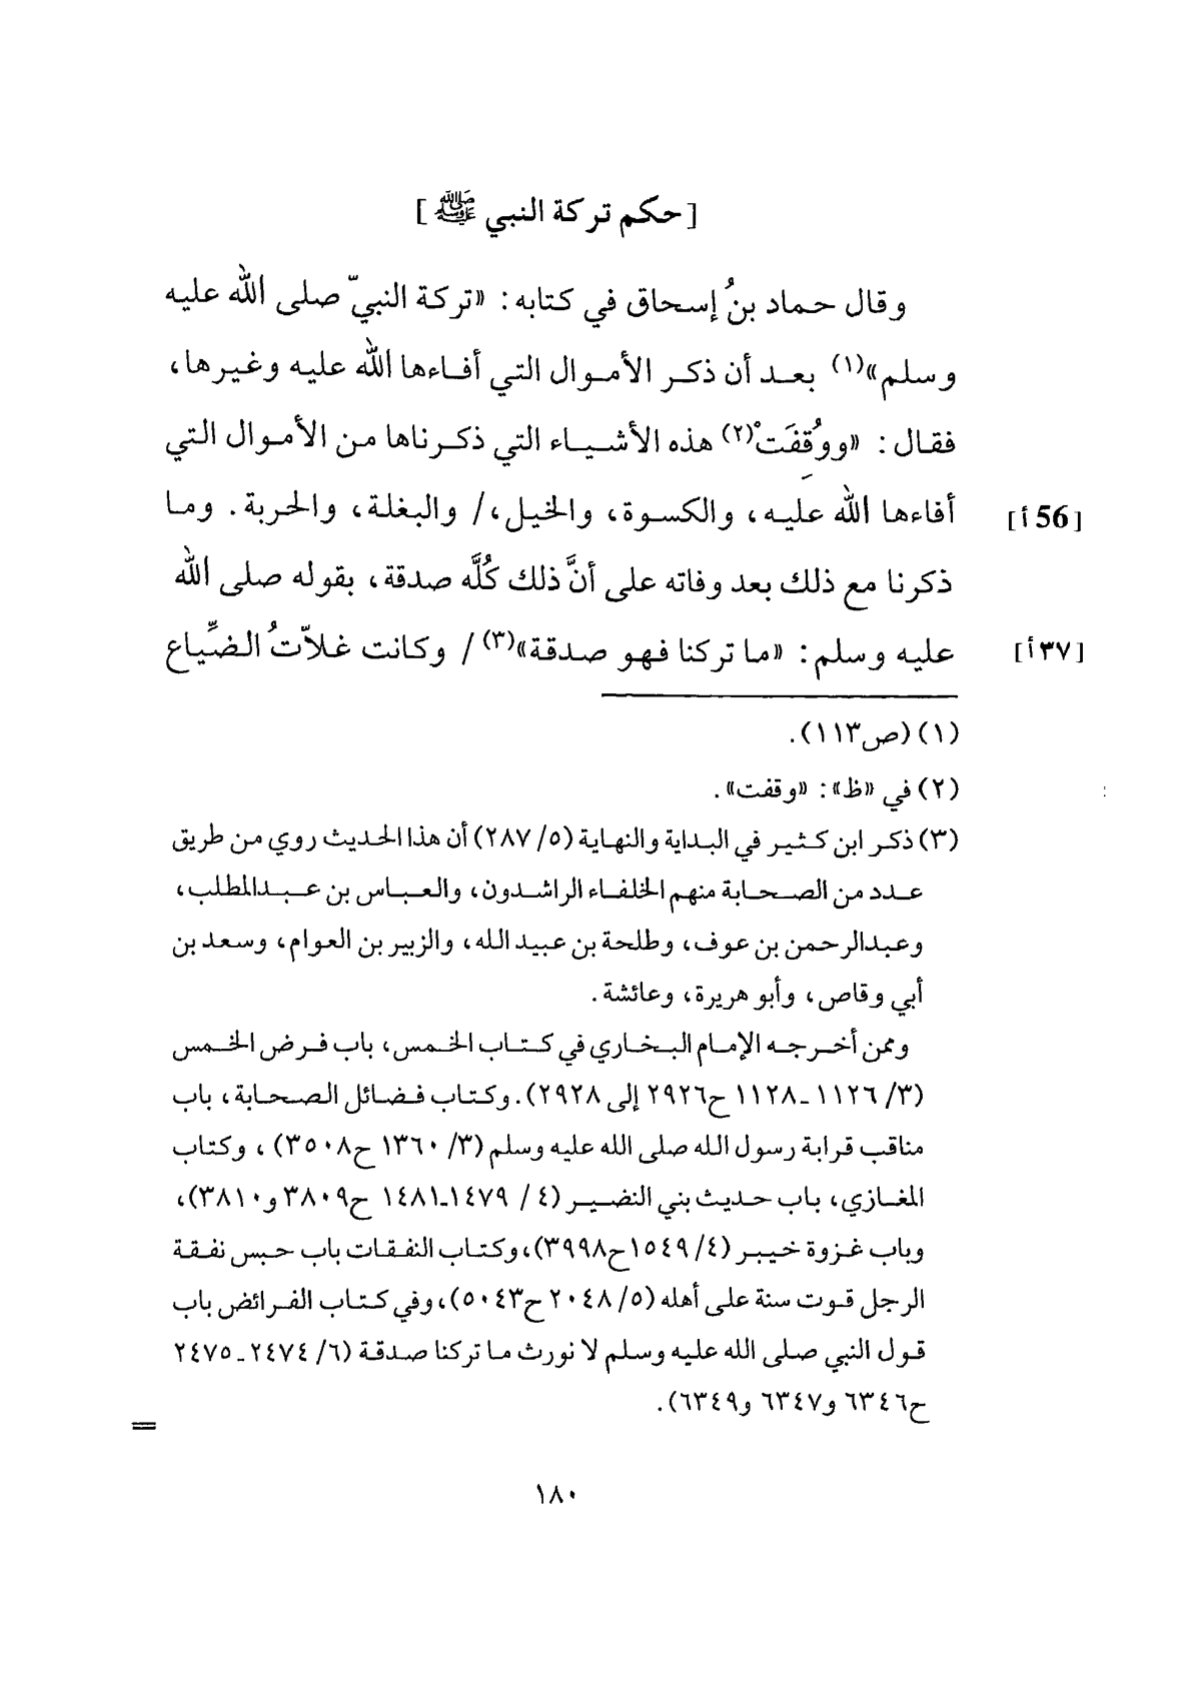 [حكم تركة النبي ﷺ]
وقال حماد بنُ إسحاق في كتابه: «تركة النبيّ صلى الله عليه
وسلم»(١) بعد أن ذكر الأموال التي أفاءها الله عليه وغيرها،
فقال: «ووُقِفَتْ(٢) هذه الأشياء التي ذكرناها من الأموال التي
أفاءها الله عليه، والكسوة، والخيل،/ والبغلة، والحربة. وما [56أ]
ذكرنا مع ذلك بعد وفاته على أنَّ ذلك كُلَّه صدقة، بقوله صلى الله
عليه وسلم: «ما تركنا فهو صدقة»(٣) / وكانت غلاّتُ الضِّياع [٣٧أ]
(١) (ص١١٣).
(٢) في «ظ»: «وقفت».
(٣) ذكر ابن كثير في البداية والنهاية (٥/ ٢٨٧) أن هذا الحديث روي من طريق
عدد من الصحابة منهم الخلفاء الراشدون، والعباس بن عبدالمطلب،
وعبدالرحمن بن عوف، وطلحة بن عبيد الله، والزبير بن العوام، وسعد بن
أبي وقاص، وأبو هريرة، وعائشة.
وممن أخرجه الإمام البخاري في كتاب الخمس، باب فرض الخمس
(٣/ ١١٢٦ ـ ١١٢٨ ح٢٩٢٦ إلى ٢٩٢٨). وكتاب فضائل الصحابة، باب
مناقب قرابة رسول الله صلى الله عليه وسلم (٣/ ١٣٦٠ ح٣٥٠٨) ، وكتاب
المغازي، باب حديث بني النضير (٤ / ١٤٧٩ـ١٤٨١ ح٣٨٠٩ و٣٨١٠)،
وباب غزوة خيبر (٤/ ١٥٤٩ح٣٩٩٨)، وكتاب النفقات باب حبس نفقة
الرجل قوت سنة على أهله (٥/ ٢٠٤٨ ح٥٠٤٣)، وفي كتاب الفرائض باب
قول النبي صلى الله عليه وسلم لا نورث ما تركنا صدقة (٦/ ٢٤٧٤ ـ ٢٤٧٥
ح٦٣٤٦ و٦٣٤٧ و٦٣٤٩).
=
١٨٠